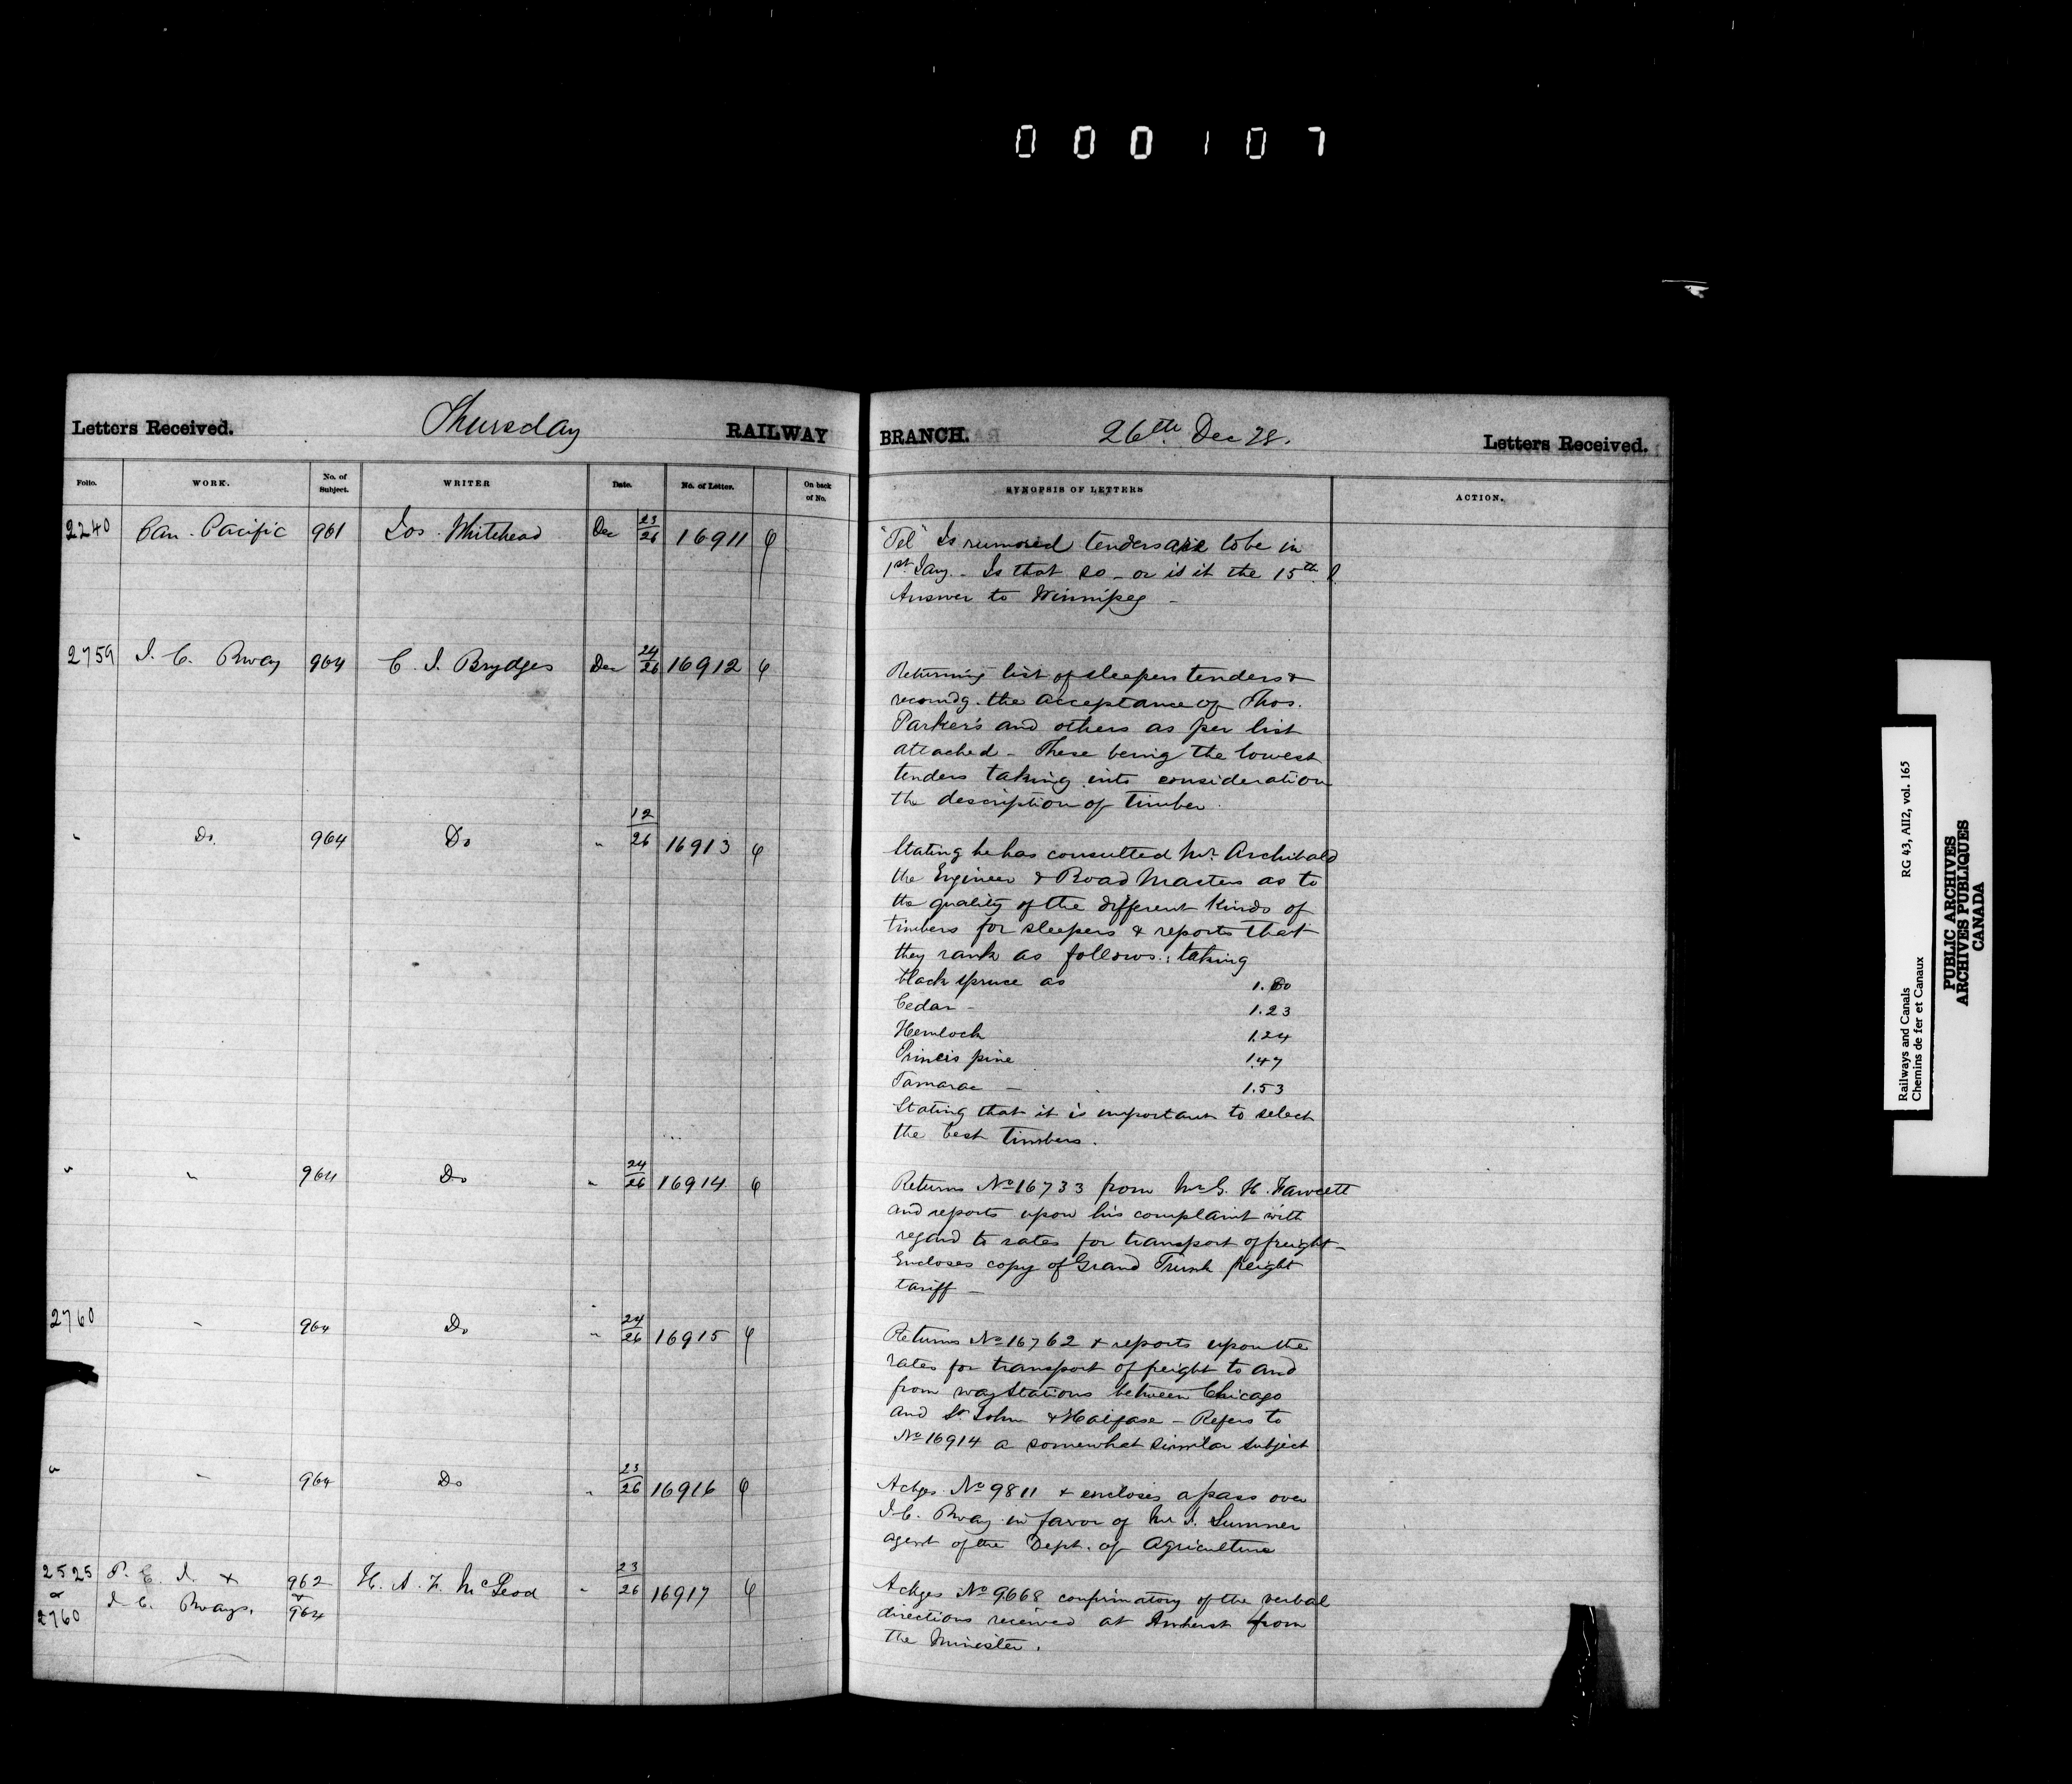 000107
Letters Received. Thursday RAILWAY BRANCH. 26th Dec 78. Letters Received.
Folio. WORK. No. of Subject. WRITER Date. No. of Letter. On back of No. SYNOPSIS OF LETTERS ACTION.
2240 Can. Pacific 961 Jos. Whitehead Dec 23/26 16911
"Tel" Is rumored tenders are to be in
1st Jany. - Is that so - or is it the 15th?
Answer to Winnipeg -
2759 I. C. Rway 964 C. J. Brydges Dec 24/26 16912
Returning list of sleepers tenders &
recomdg. the acceptance of Thos.
Parker's and others as per list
attached - These being the lowest
tenders taking into consideration
the description of timber.
" Do. 964 Do " 12/26 16913
Stating he has consulted Mr. Archibald
the Engineer & Road Masters as to
the quality of the different kinds of
timbers for sleepers & reports that
they rank as follows: taking
black spruce as 1.00
Cedar - 1.23
Hemlock 1.24
Princis pine 1.47
Tamarac - 1.53
Stating that it is important to select
the best timbers.
" " 964 Do " 24/26 16914
Returns No 16733 from Mr G. H. Fawcett
and reports upon his complaint with
regard to rates for transport of freight -
Encloses copy of Grand Trunk freight
tariff -
2760 " 964 Do " 24/26 16915
Returns No 16762 & reports upon the
rates for transport of freight to and
from way stations between Chicago
and St John & Halifax - Refers to
No 16914 a somewhat similar subject
" " 964 Do " 23/26 16916
Ackges. No 9811 & encloses a pass over
I.C. Rway in favor of Mr J. Sumner
agent of the Dept. of Agriculture
2525 & 2760 P. E. I. & I. C. Rways. 962 & 964 H. A. F. McLeod " 23/26 16917
Ackges No 9668 confirmatory of the verbal
directions received at Amherst from
the Minister.
Railways and Canals RG 43, AII2, vol. 165
Chemins de fer et Canaux
PUBLIC ARCHIVES
ARCHIVES PUBLIQUES
CANADA